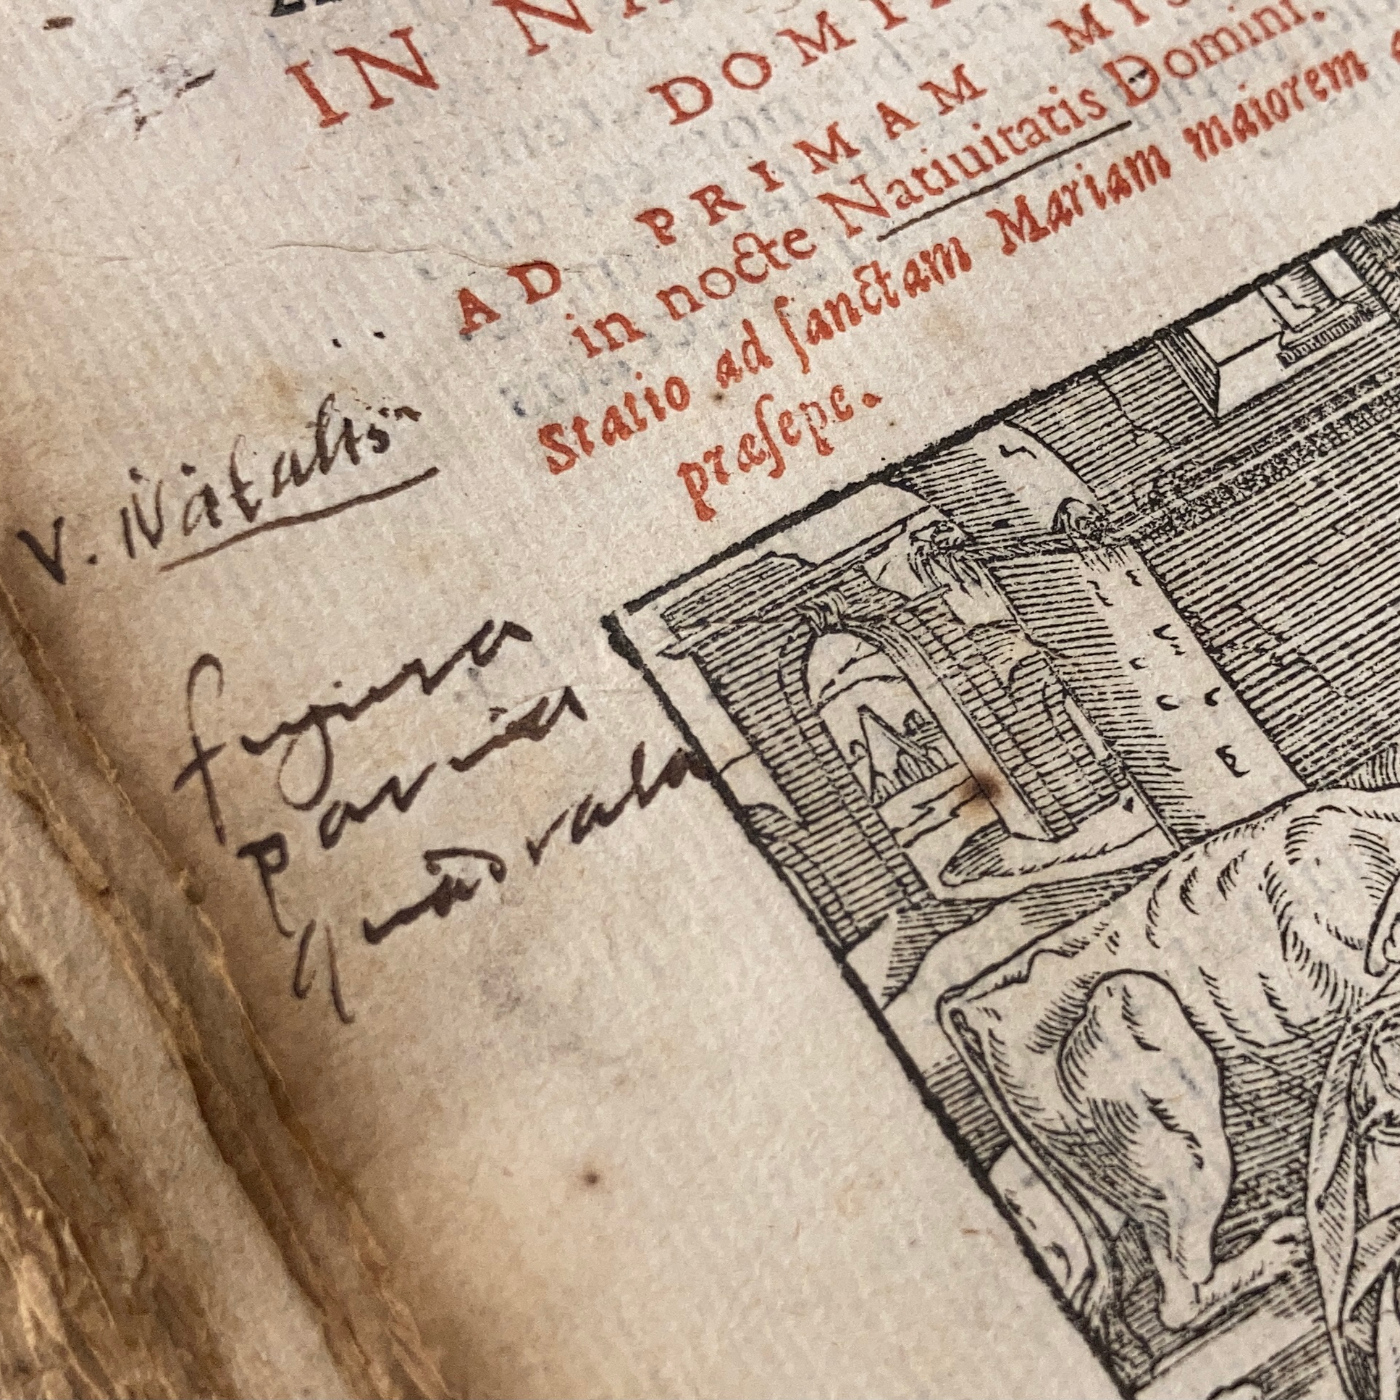 IN NA
DOMI
AD PRIMAM MIS
in nocte Natiuitatis Domini.
Statio ad ſanctam Mariam maiorem
præſepe.
V. Natalis
figura
parua
quadrala